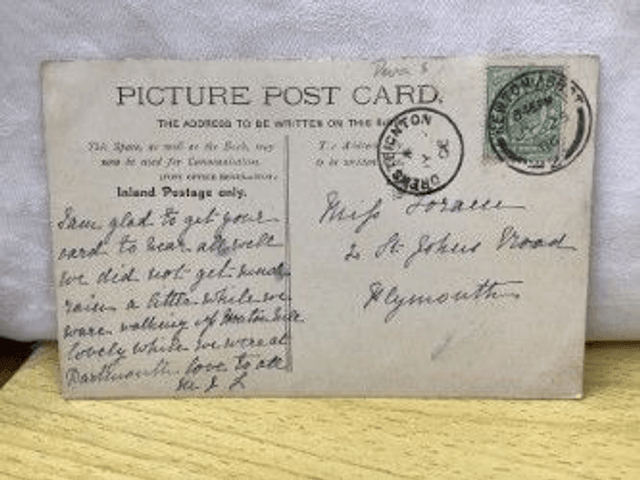 Deva 5
PICTURE POST CARD.
THE ADDRESS TO BE WRITTEN ON THIS
This Space, as well as the Back, may
now be used for Communication.
(POST OFFICE REGULATION.)
Inland Postage only.
to be
I am glad to get your
card to hear all well
we did not get much
rain a little while we
ware walking up Hill
lovely while we were at
Dartmouth love to all
NEWTON ABBOT
Miss
2 St Johns Road
Plymouth